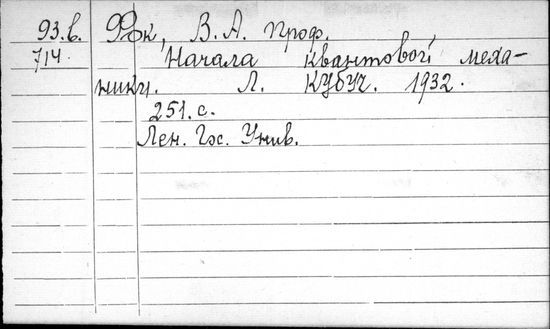 93.в. Фок, В. А. Проф.
714. Начала квантовой меха-
ники. Л. КУБУЧ. 1932.
251. с.
Лен. Гос. Унив.